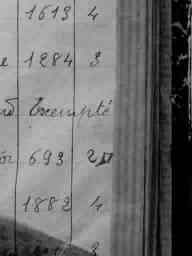 1613 4
1284 3
Exempté
693 2
1882 4
3